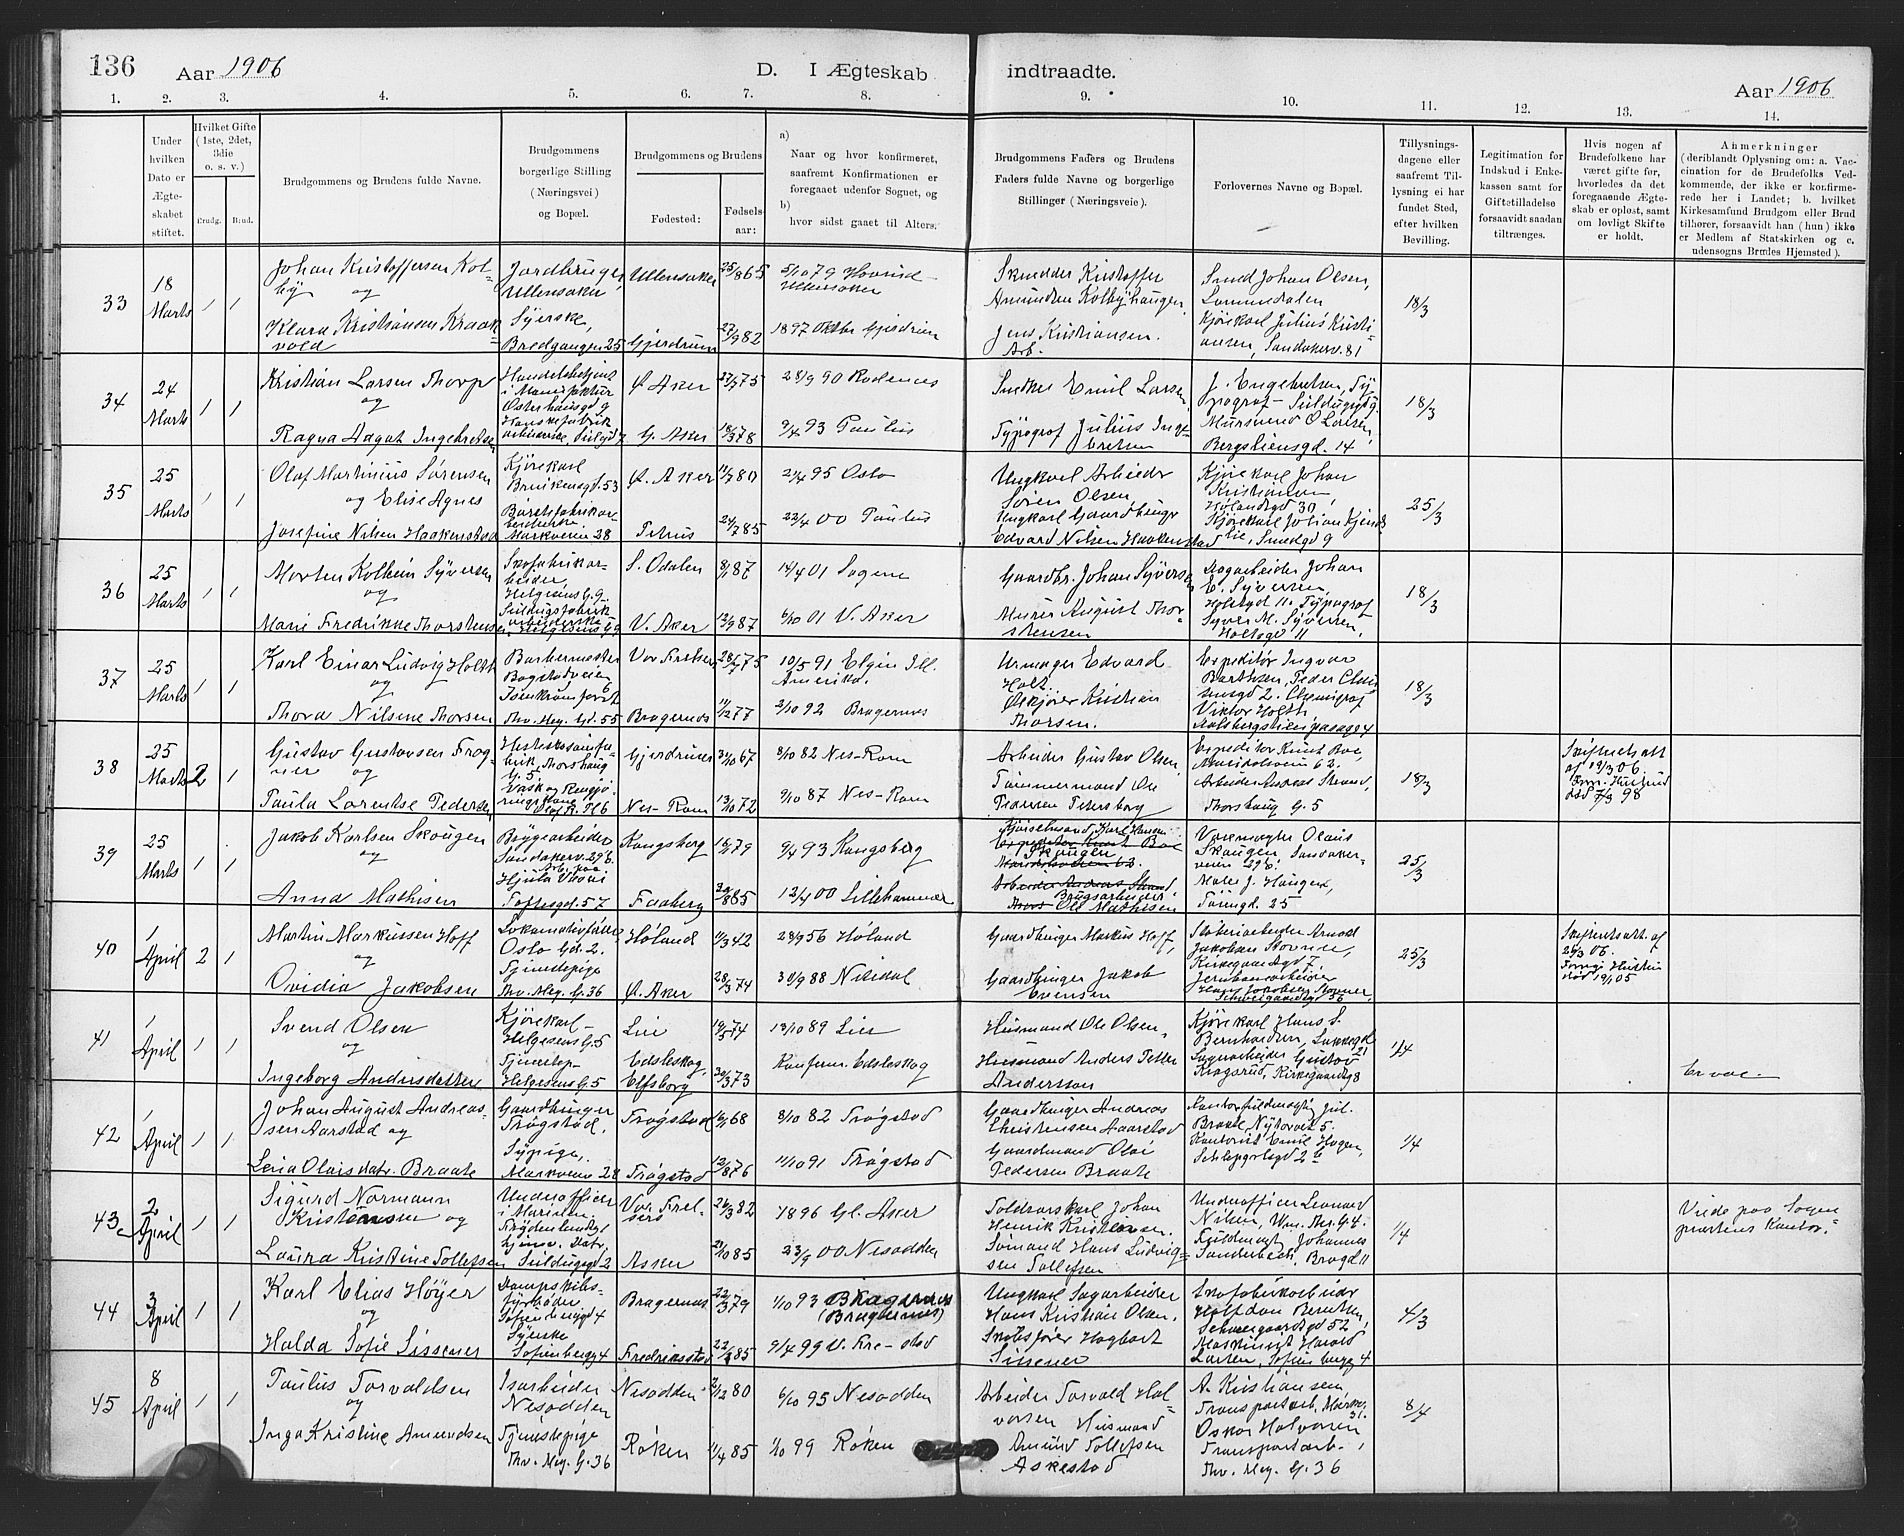 136
Aar 1906
D. I Ægteskab
indtraadte.
Aar 1906
1. 2. 3. 4. 5. 6. 7. 8. 9. 10. 11. 12. 13. 14.
Under hvilken Dato er Ægteskabet stiftet.
Hvilket Gifte (1ste, 2det, 3die o. s. v.)
Brudg. Brud.
Brudgommens og Brudens fulde Navne.
Brudgommens borgerlige Stilling (Næringsvei) og Bopæl.
Brudgommens og Brudens
Fødested:
Fødsels-aar:
a) Naar og hvor konfirmeret, saafremt Konfirmationen er foregaaet udenfor Sognet, og
b) hvor sidst gaaet til Alters.
Brudgommens Faders og Brudens Faders fulde Navne og borgerlige Stillinger (Næringsveie).
Forlovernes Navne og Bopæl.
Tillysnings-dagene eller saafremt Til-lysning ei har fundet Sted, efter hvilken Bevilling.
Legitimation for Indskud i Enke-kassen samt for Giftetilladelse forsaavidt saadan tiltrænges.
Hvis nogen af Brudefolkene har været gift før, hvorledes da det foregaaende Ægte-skab er opløst, samt om lovligt Skifte er holdt.
Anmerkninger (deriblandt Oplysning om: a. Vac-cination for de Brudefolks Ved-kommende, der ikke er konfirme-rede her i Landet; b. hvilket Kirkesamfund Brudgom eller Brud tilhører, forsaavidt han (hun) ikke er Medlem af Statskirken og c. udensogns Brudes Hjemsted).
33
18 Marts
1 1
Johan Kristoffersen Kolby
og
Klara Kristiansen Kraakvold
Jordbruger
Ullensaker
Syerske,
Bredgangen 25
Ullensaker
Gjerdrum
25/ 865
27/9 82
5/10 79 Hovind Ullensaker
1897 Oktbr Gjerdrum
Skrædder Kristoffer Amundsen Kolbyhaugen.
Jens Kristiansen. Arb.
Smed Johan Olsen, Lommedalen
Kjørekarl Julius Kristiansen, Sandakerv. 81
18/3
34
24 Marts
1 1
Kristian Larsen Thorp
og
Ragna Aagot Ingebretsen
Handelsbetjent i Manufaktur
Osterhausgd 9
Ø. Aker
V. Aker
27/7 75
18/3 78
28/9 90 Rødenes
9/4 93 Paulus
Snedker Emil Larsen
Typograf Julius Ingebretsen
J. Engebretsen, Typograf
Mursvend O Larsen, Bergsliensgd. 14
18/3
35
25 Marts
1 1
Olaf Martinius Sørensen
og Elise Agnes
Josefine Nilsen Haakenstad
Kjørekarl
Brinkensgd. 53
Markveien 28
Ø. Aker
Petrus
11/7 80
24/7 85
21/4 95 Oslo
22/4 00 Paulus
Ungkarl Arbeider Søren Olsen,
Ungkarl Gaardbruger Edvard Nilsen Haakenstad
Kjørekarl Johan Kristiansen, Hølandsgd 30,
Kjørekarl Johan Kjendslie, Smedgd 9
25/3
36
25 Marts
1 1
Morten Kolbein Syversen
og
Marie Fredrikke Thorstensen
Skofabrikarbeider,
Helgesens G. 9
Sildugsfabrik arbeiderske
Helgesens G 9
S. Odalen
V. Aker
8/1 87
12/9 87
14/4 01 Sagene
6/10 01 V. Aker
Gaardbr. Johan Syversen
Murer August Thorstensen
Dagarbeider Johan E. Syversen,
Holtsgd 11. Typograf Syver M. Syversen, Holtsgd 11
18/3
37
25 Marts
1 1
Karl Einar Ludvig Holth
og
Thora Nilsine Thorsen
Barbermester
Bogstadveien 6
Jomfrue for
Thv. Mey. Gd. 55
Vor Frelser
Bragernes
28/ 75
11/12 77
10/5 91 Elgin Ill. Amerika.
2/10 92 Bragernes
Urmager Edvard Holt.
Ølkjører Kristian Thorsen.
Expeditør Ingvar Barthsen, Peder Clausensgd 2. Chemigraf Viktor Holth
18/3
38
25 Marts
2 1
Gustav Gustavsen Frogner
og
Paula Lorentse Pedersen
Hesteskosømfabrik, Thorshaug G. 5
Olaf R. Pl 6
Gjerdrum
Nes-Rom
31/10 67
13/10 72
8/10 82 Nes-Rom
9/10 87 Nes-Rom
Arbeider Gustav Olsen,
Tømmermand Ole Pedersen Petersborg
Expeditør Knut Boe, Maridalsveien 62.
Arbeider Andreas Strand, Thorshaug G. 5
18/3
Skifteretsatt af 19/3 06.
Forr. Hustru død 7/3 98
39
25 Marts
1 1
Jakob Karlsen Skougen
og
Anna Mathisen
Bryggearbeider
Sandakerv. 29 b.
Hjula Væveri
Toftesgd. 57
Kongsberg
Faaberg
16/1 79
865
9/4 93 Kongsberg
12/4 00 Lillehammer
Kjørselmand Karl Hansen Skougen
Expeditør Knut Boe
Maridalsveien 62.
Arbeider Andreas Strand,
Brugsarbeider Ole Mathisen
Varemægler Olaus Skougen, Sandakerveien 29 b.
Maler J. Haugen, Tøiengd. 25
25/3
40
1 April
2 1
Martin Markussen Hoff
og
Ovidia Jakobsen
Lokomotivfører
Oslo Gd. 2.
Tjenestepige
Thv. Mey. G. 36
Høland
Ø. Aker
11/3 42
28/3 74
28/9 56 Høland
30/9 88 Nitedal
Gaardbruger Markus Hoff,
Gaardbruger Jakob Evensen
Støberiarbeider Arnold Jakobsen Stovner, Kirkegaardsgd 7,
Jernbanearbeider Hans Jakobsen Stovner, Schweigaardsgd 56
25/3
Skifteretsatt. af 26/3 06.
Forrige Hustru død 19/1 05
41
1 April
1 1
Svend Olsen
og
Ingeborg Andersdatter
Kjørekarl
Helgesens G. 5
Tjenestep.
Helgesens G. 5
Lier
Edsleskog, Elfsborg
19/5 74
30/3 73
13/10 89 Lier
Konfirm. Edsleskog
Husmand Ole Olsen.
Husmand Anders Petter Andersson
Kjørekarl Hans S. Bernhardsen, Lakkegd 21
Sagarbeider Gustav Krogsrud, Kirkegaardsg 8
1/4
Er vac.
42
1 April
1 1
Johan August Andreassen Aarstad og
Lina Olaisdatr. Braate
Gaardbruger
Trøgstad.
Sypige,
Markveien 28
Trøgstad
Trøgstad
68
12/8 76
8/10 82 Trøgstad
11/10 91 Trøgstad
Gaardbruger Andreas Christensen Aarstad
Gaardmand Olai Pedersen Braate
Kontorfuldmægtig Jul. Braate, Nytorvet 5.
Kontorist Emil Hagen, Schleppegrelsgd 2 b
1/4
43
2 April
1 1
Sigurd Normann Kristensen og
Laura Kristine Tollefsen
Underofficer i Marinen.
Vor Frelsers
Asker
26/3 82
21/10 85
1896 Gl. Aker
23/9 00 Nesodden
Toldvarskarl Johan Henrik Kristensen.
Sømand Hans Ludvigsen Tollefsen
Underofficer Leonard Nilsen,
Fuldmægt. Johannes Sanderbech, Brogd 11
1/4
Viede paa Sognepræstens Kontor.
44
3 April
1 1
Karl Elias Høyer
og
Halda Sofie Sissener
Dampskibsfyrbøder
Sofienberggd 4
Syerske
Sofienbergg 4
Bragernes
Fredriksstad
22/3 79
22/ 85
1/10 93 Bragernes (Bragernes)
9/4 99 V. Fre-stad
Ungkarl Sagarbeider Hans Kristian Olsen.
Skibsfører Hagbart Sissener
Skofabrikarbeider Halfdan Berntsen, Schweigaardsgd 52
Maskinist Harald Larsen, Sofienbergg 4
4/3
45
8 April
1 1
Paulus Torvaldsen
og
Inga Kristine Amundsen
Isarbeider
Nesodden
Tjenestepige
Thv. Mey. G. 36
Nesodden
Røken
2/12 80
11/4 85
6/10 95 Nesodden
1/10 99 Røken
Arbeider Torvald Halvorsen
Husmand Amund Tollefsen Askestad
A. Kristiansen Transportarb,
Oskar Halvorsen Transportarb., Thv. Mey. G. 36
8/4